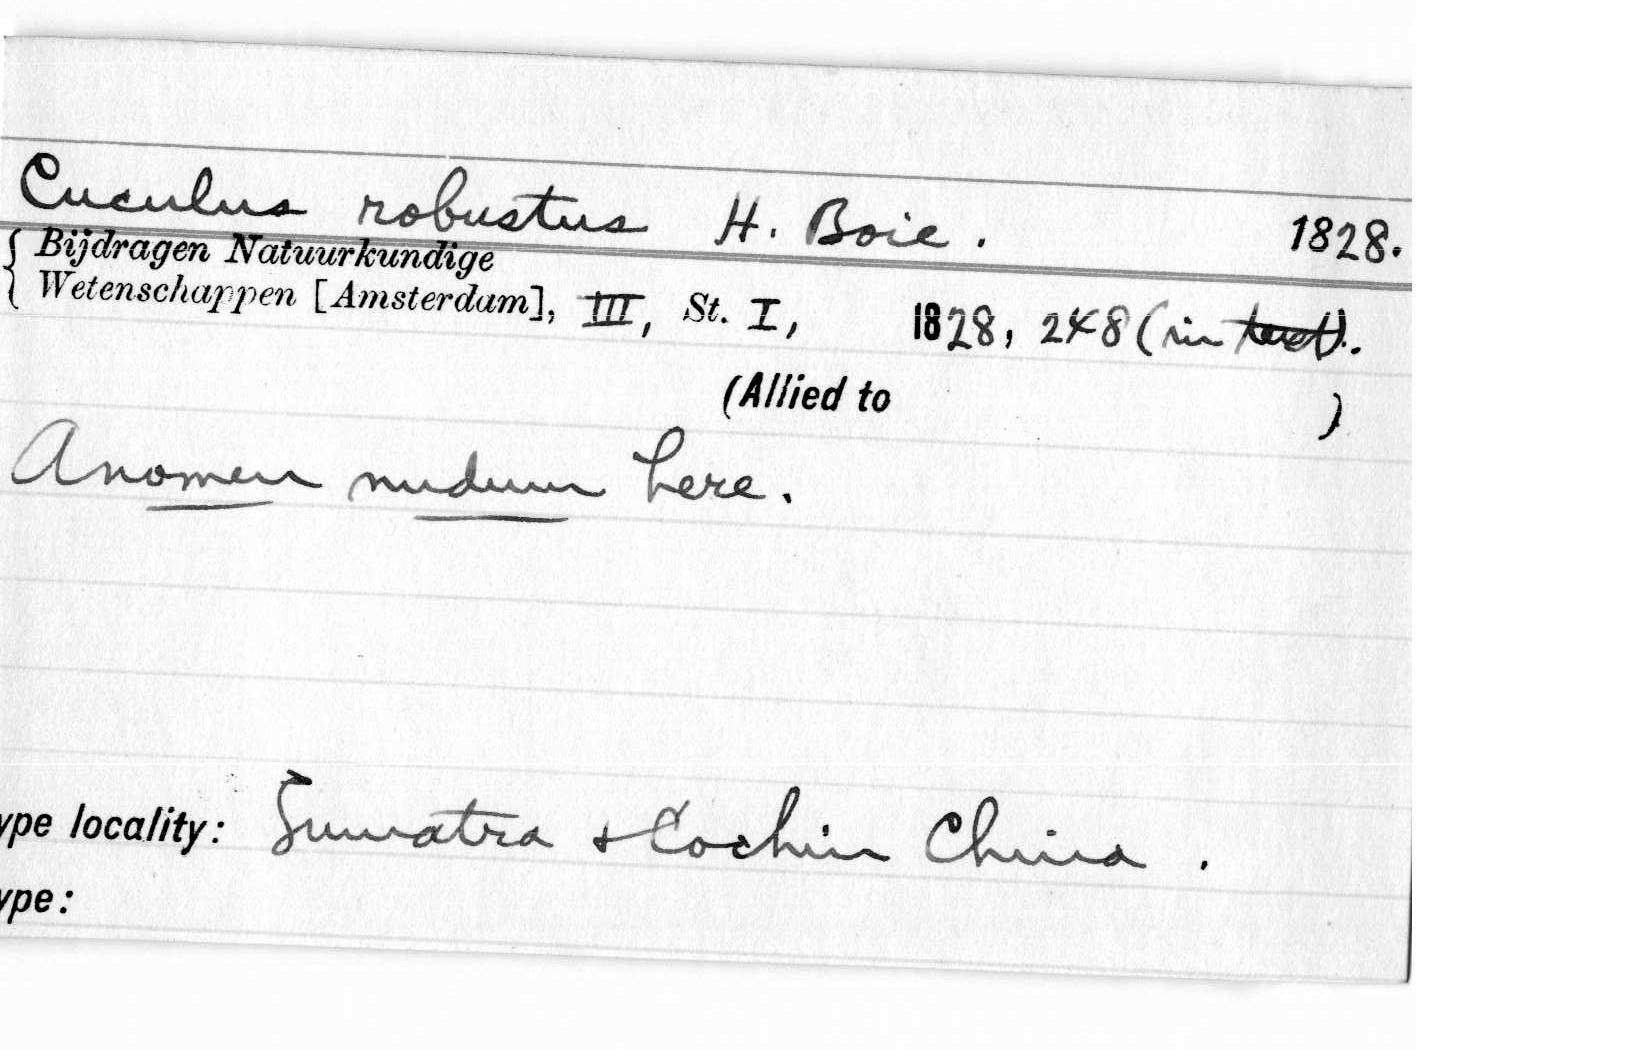 Cuculus robustus H. Boie. 1828.
{ Bijdragen Natuurkundige
Wetenschappen [Amsterdam], III, St. I, 1828, 248 (in text).
(Allied to )
A nomen nudum here.
ype locality: Sumatra & Cochin China.
ype: